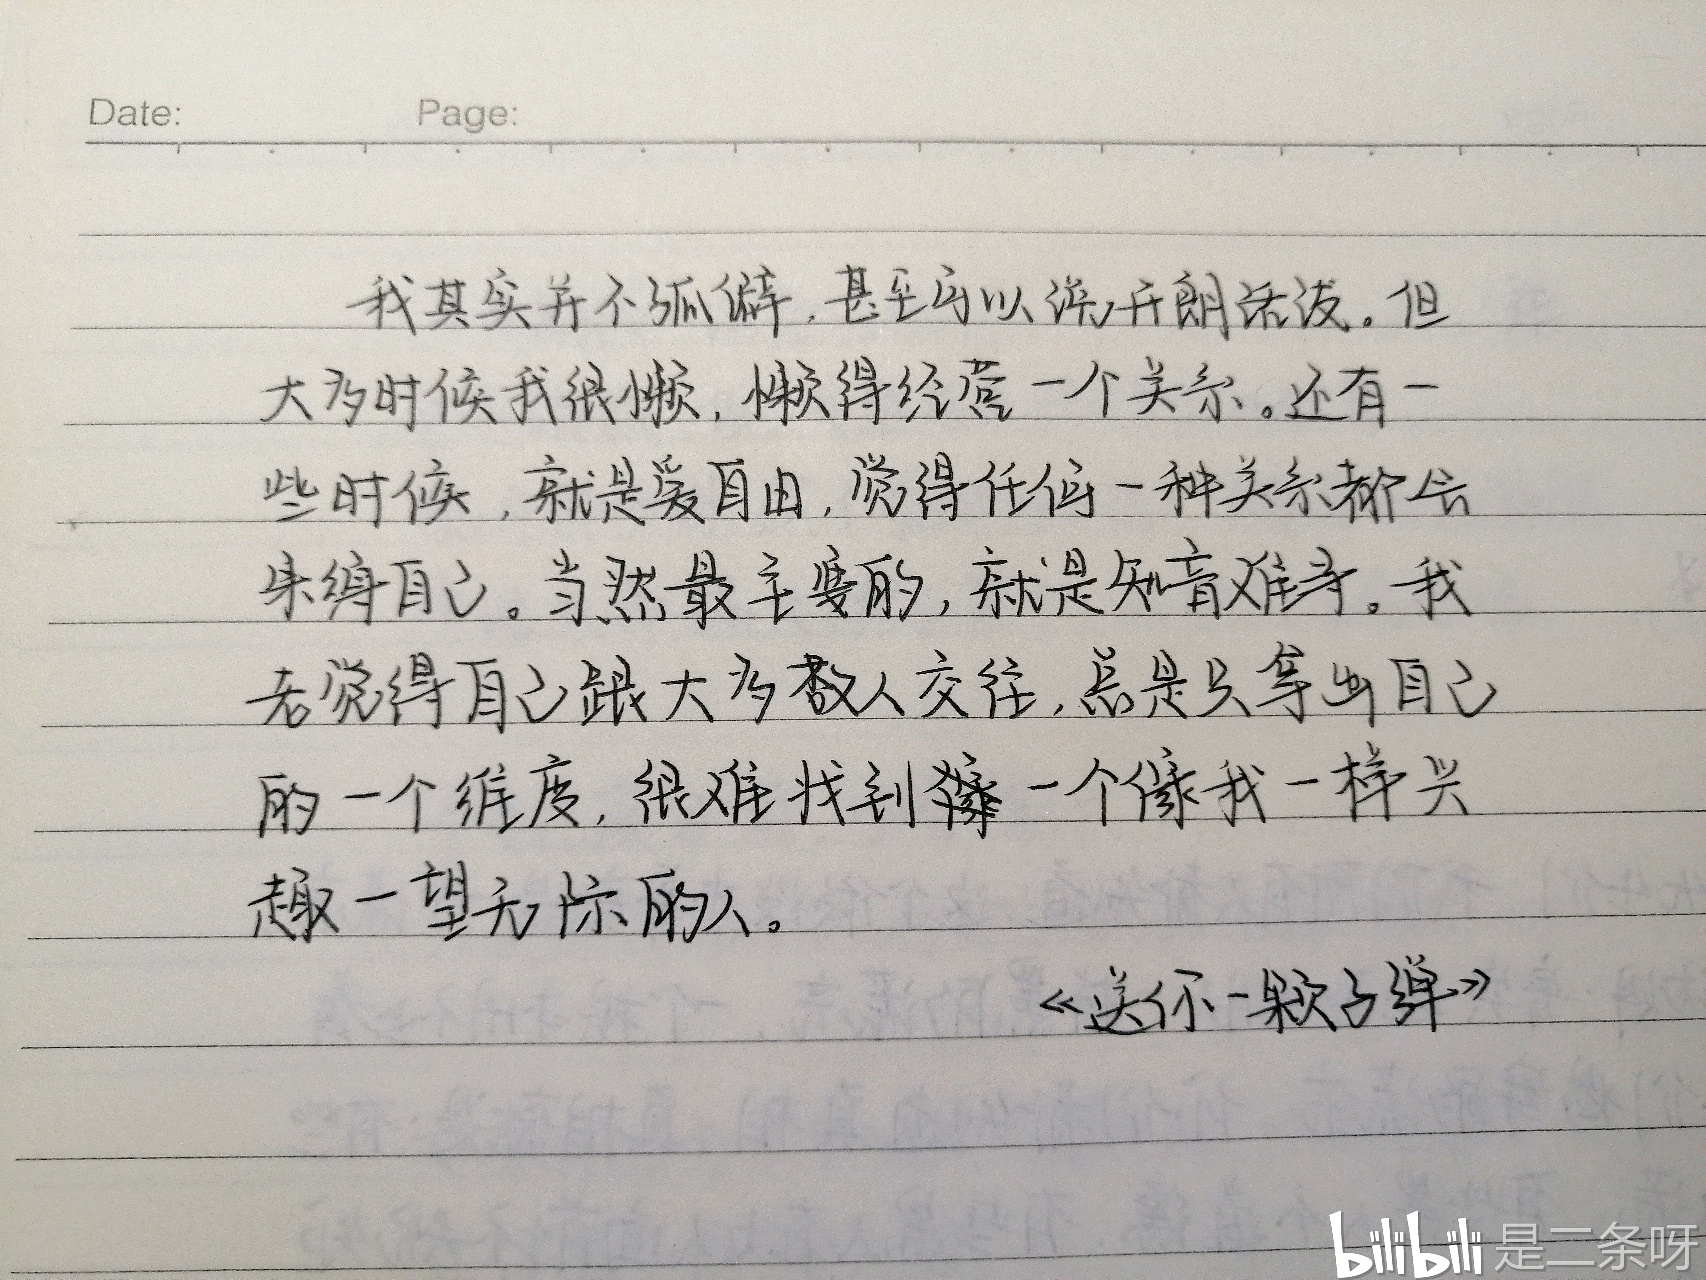 Date: Page:
我其实并不孤僻，甚至可以说开朗活泼。但
大多时候我很懒，懒得经营一个关系。还有一
些时候，就是爱自由，觉得任何一种关系都会
束缚自己。当然最主要的，就是知音难寻。我
老觉得自己跟大多数人交往，总是只拿出自己
的一个维度，很难找到一个像我一样兴
趣一望无际的人。
《送你一颗子弹》
bilibili 是二条呀